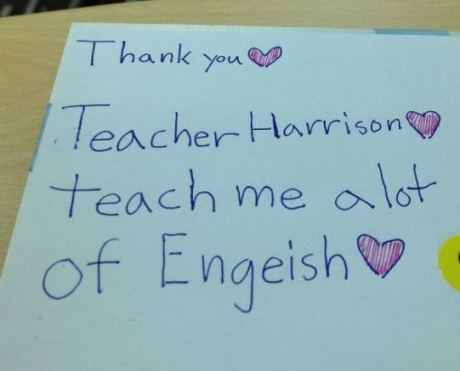 Thank you
Teacher Harrison
teach me a lot
of Engeish